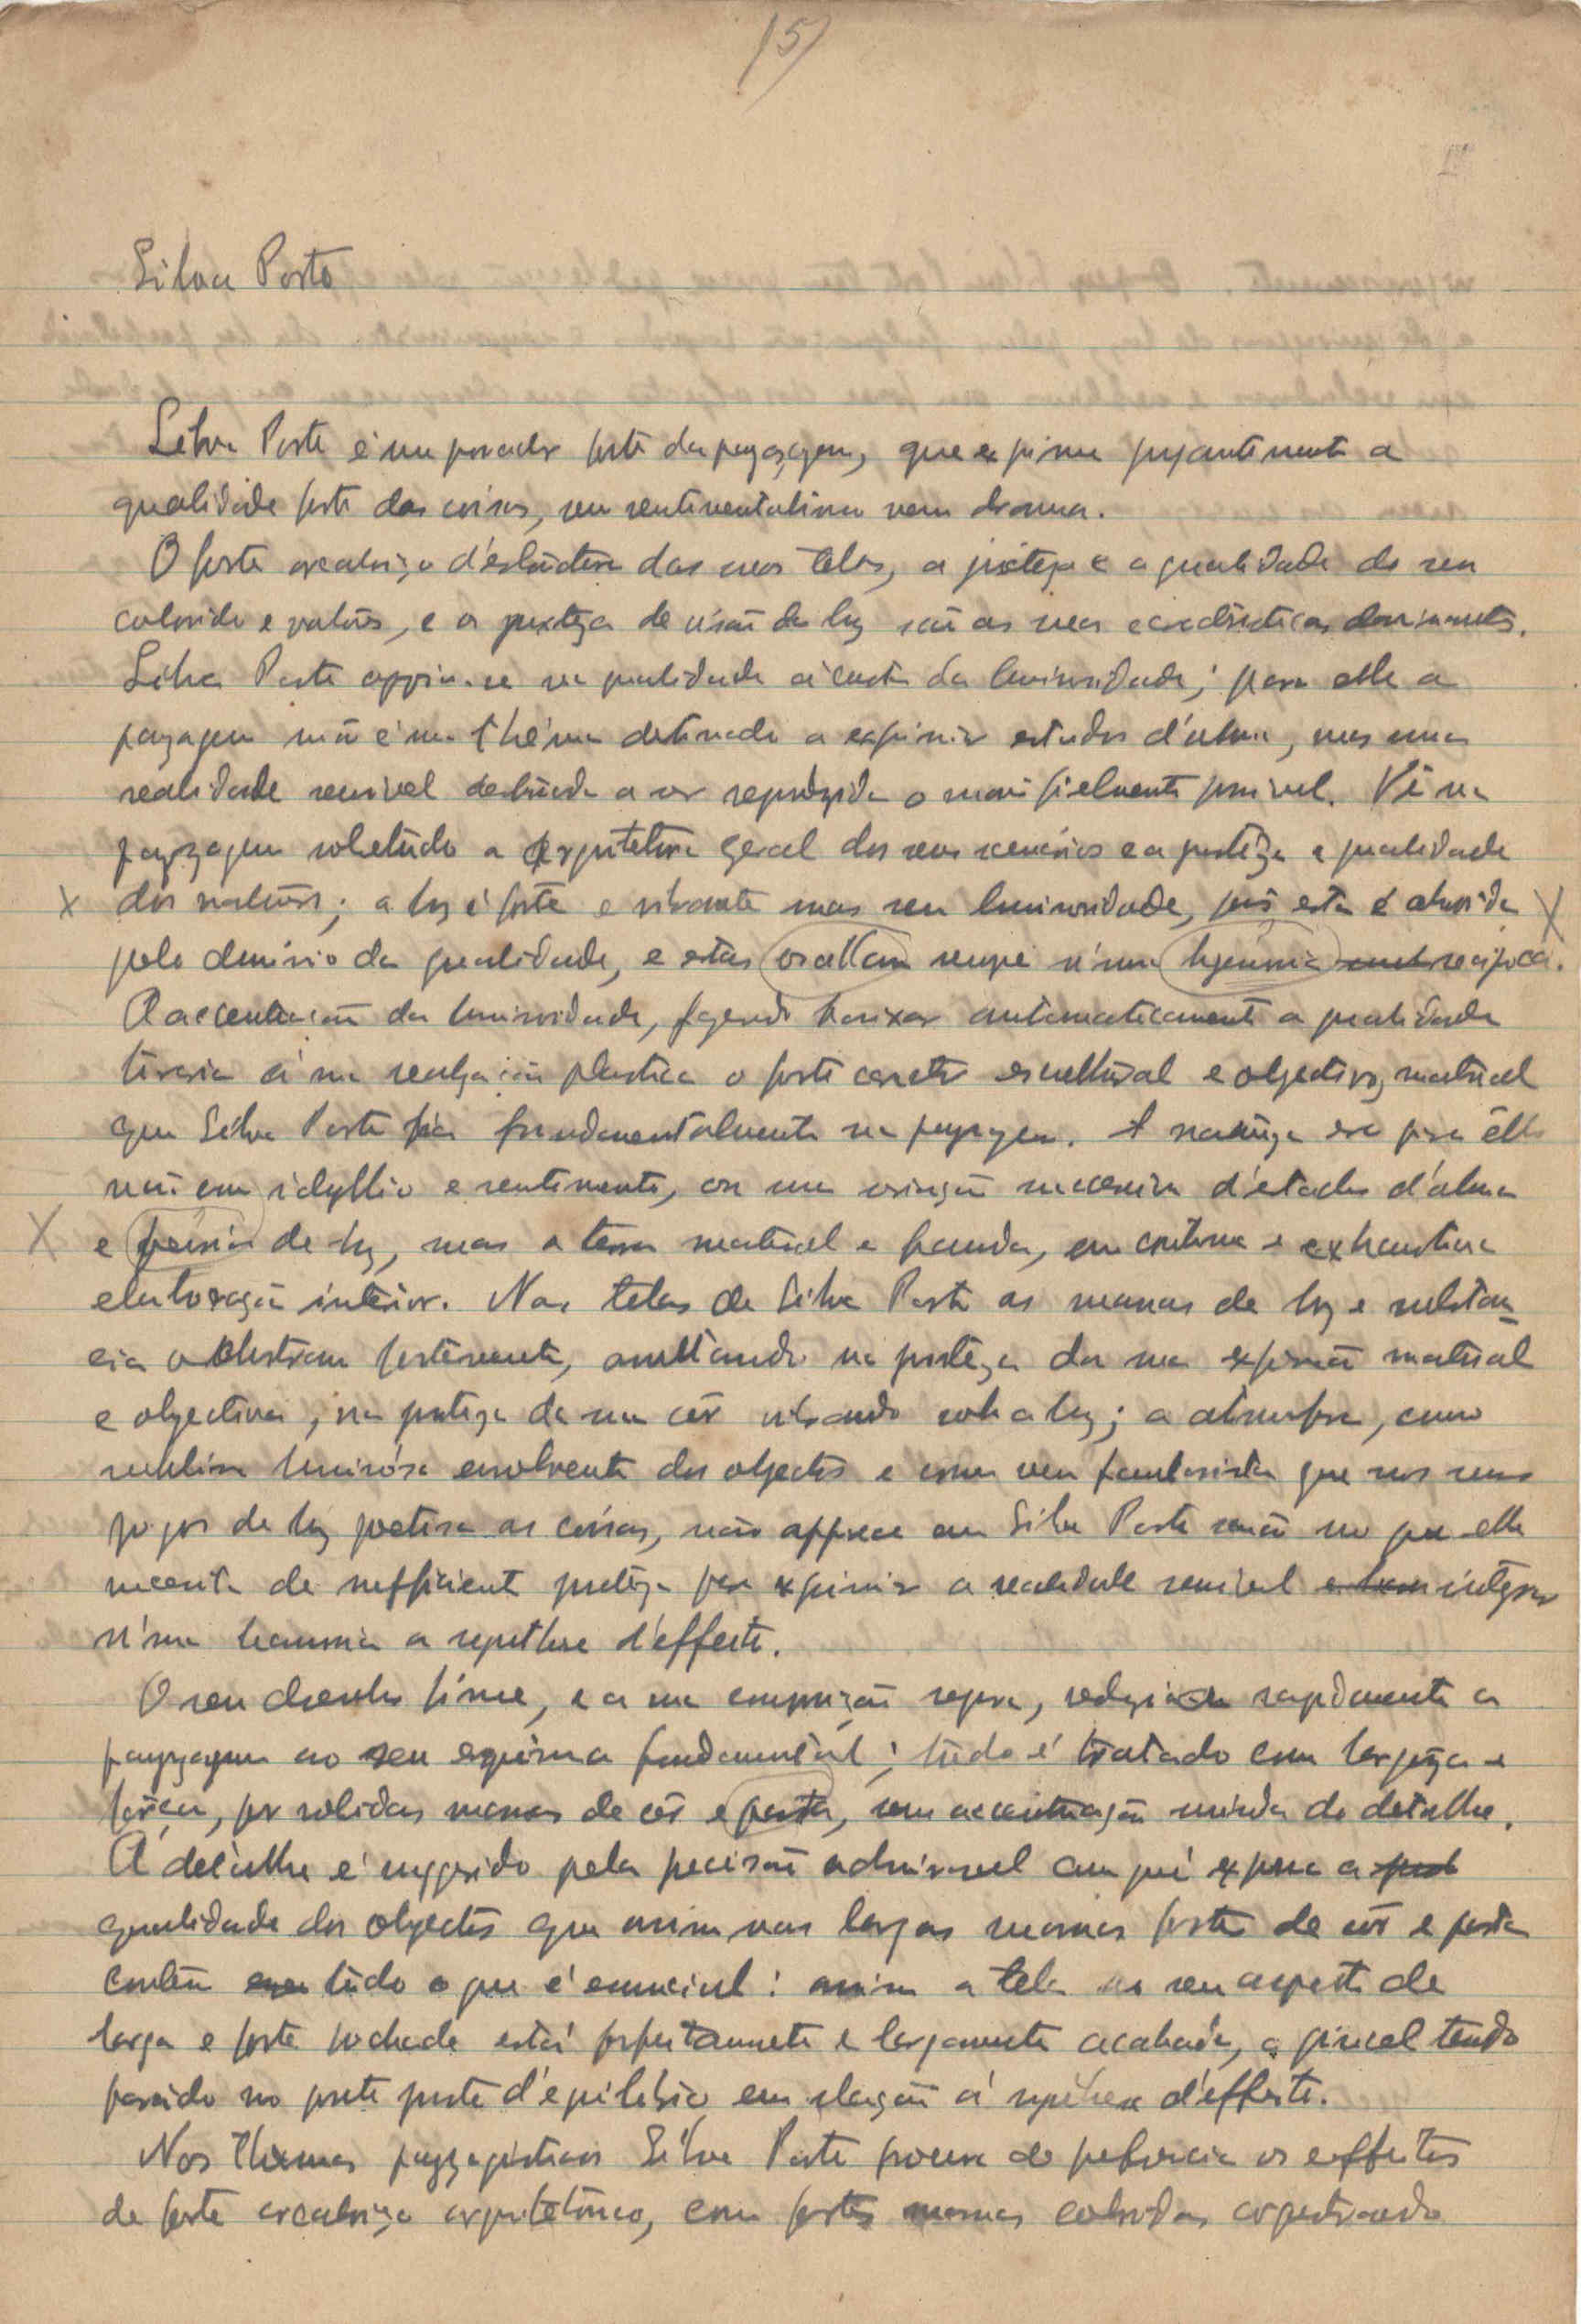 15)
Silva Porto
Silva Porto é um pintor forte da paysagem, que exprime pujantemente a
qualidade forte das coisas, sem sentimentalismo nem drama.
O forte arcaboiço d'estructura das suas telas, a justeza e a qualidade do seu
colorido e valôres, e a justeza de visão da luz são as suas caracteristicas dominantes.
Silva Porto appoia-se na qualidade á custa da luminosidade; para elle a
paysagem não é um thêma destinado a exprimir estados d'alma, mas uma
realidade sensivel destinada a ser reproduzida o mais fielmente possivel. Vê na
payzagem sobretudo a arquitetura geral dos seus scenários e a justêza e qualidade
X dos valôres; a luz é forte e vibrante mas sem luminosidade, pois esta é absorvida X
pelo dominio da qualidade, e estas oscillam sempre n'uma reciproca.
A accentuacão da luminosidade, fazendo baixar automaticamente a qualidade
tiraria á sua realização plastica o forte caracter escultural e objectivo, material
que Silva Porto fundamentalmente na payzagem. A natureza era para êlle
não um idyllio e sentimento, ou uma successiva d'estados d'alma
X e de luz, mas a terra material e fecunda, em continua e exhaustiva
elaboração interior. Nas telas de Silva Porto as massas de luz e substan-
cia fortemente, na justêza da sua expressão material
e objectiva, na justeza da sua côr vibrando sob a luz; a atmosfera, como
luminósa envolvente dos objectos e como veu fantasista que nos seus
jogos de luz poetisa as coisas, não apparece em Silva Porto senão no que elle
necessita de sufficiente justêza para exprimir a realidade sensivel integrar
n'uma harmonia a d'effeito.
O seu desenho firme, e a sua composição segura, rapidamente a
payzagem ao seu esquema fundamental; tudo é tratado com largueza e
fôrça, por solidas massas de côr e pasta, sem accentuação miuda do detalhe.
O detalhe é suggerido pela precisão admiravel com que exprime a
qualidade dos objectos que assim nas largas massas fortes de côr e pasta
contêm tudo o que é essencial: assim a tela no seu aspecto de
larga e forte pochade está perfeitamente e largamente acabada, o pincel tendo
parado no justo ponto d'equilibrio em relação á d'effeito.
Nos themas payzagisticos Silva Porto procura de preferencia os effeitos
de forte arcaboiço arquitetónico, com fortes massas coloridas